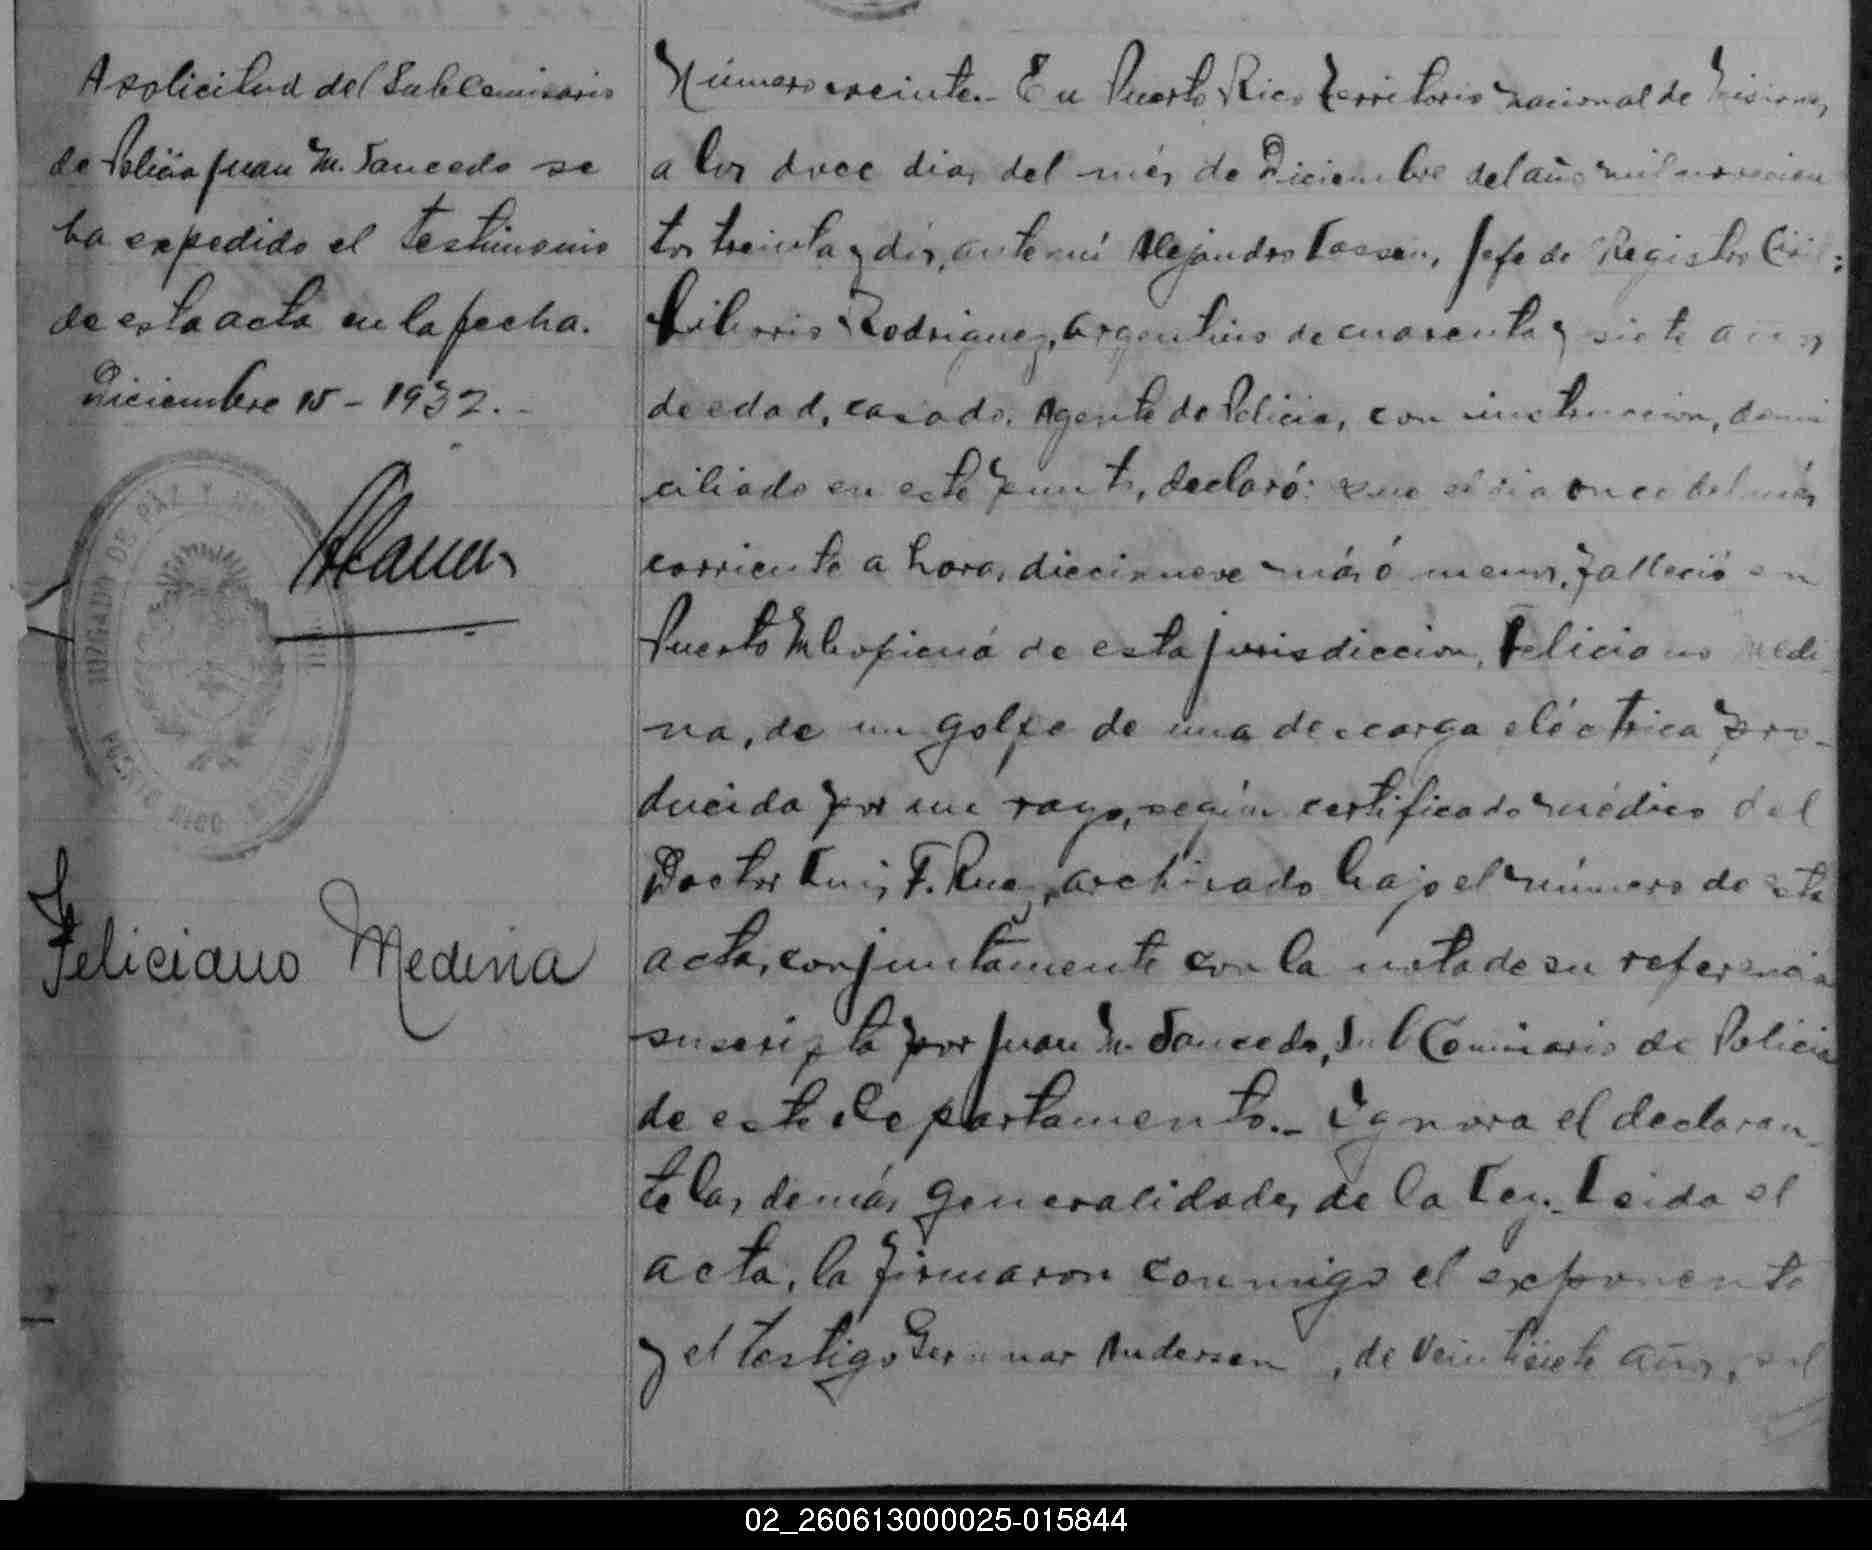 A solicitud del Sub Comisario
de Policia Juan M. Saucedo se
ha expedido el testimonio
de esta acta en la fecha.
Diciembre 15 - 1932.-
JUZGADO DE PAZ Y
PUERTO RICO
Feliciano Medina
Número veinte.- En Puerto Rico Territorio nacional de Misiones
a los doce dias del més de Diciembre del año mil novecien
tos treinta y dós, ante mí Alejandro Lassen, Jefe de Registro Civil:
Liborio Rodriguez, argentino de cuarenta y siete años
de edad, casado, Agente de Policia, con instruccion, domi
ciliado en este punto, declaró: que el dia once del més
corriente a horas diecinueve más ó menos, falleció en
Puerto de esta jurisdiccion, Feliciano Medi-
na, de un golpe de una descarga eléctrica pro-
ducida por un rayo, según certificado médico del
Doctor Luis F. Ruez, archivado bajo el número de esta
acta, conjuntamente con la nota de su referencia
suscripta por Juan M. Saucedo, Sub Comisario de Policia
de este departamento.- Ignora el declaran-
te las demás generalidades de la Ley.- Leida el
acta, la firmaron conmigo el exponente
y el testigo Andersen, de veintisiete años, sol
02_260613000025-015844